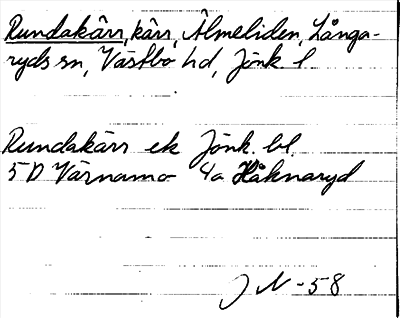 Rundakärr, kärr, Älmeliden, Långa-
ryds sn, Västbo hd, Jönk. l.
Rundakärr ek Jönk. bl.
5 D Värnamo 4a Håknaryd
J N -58